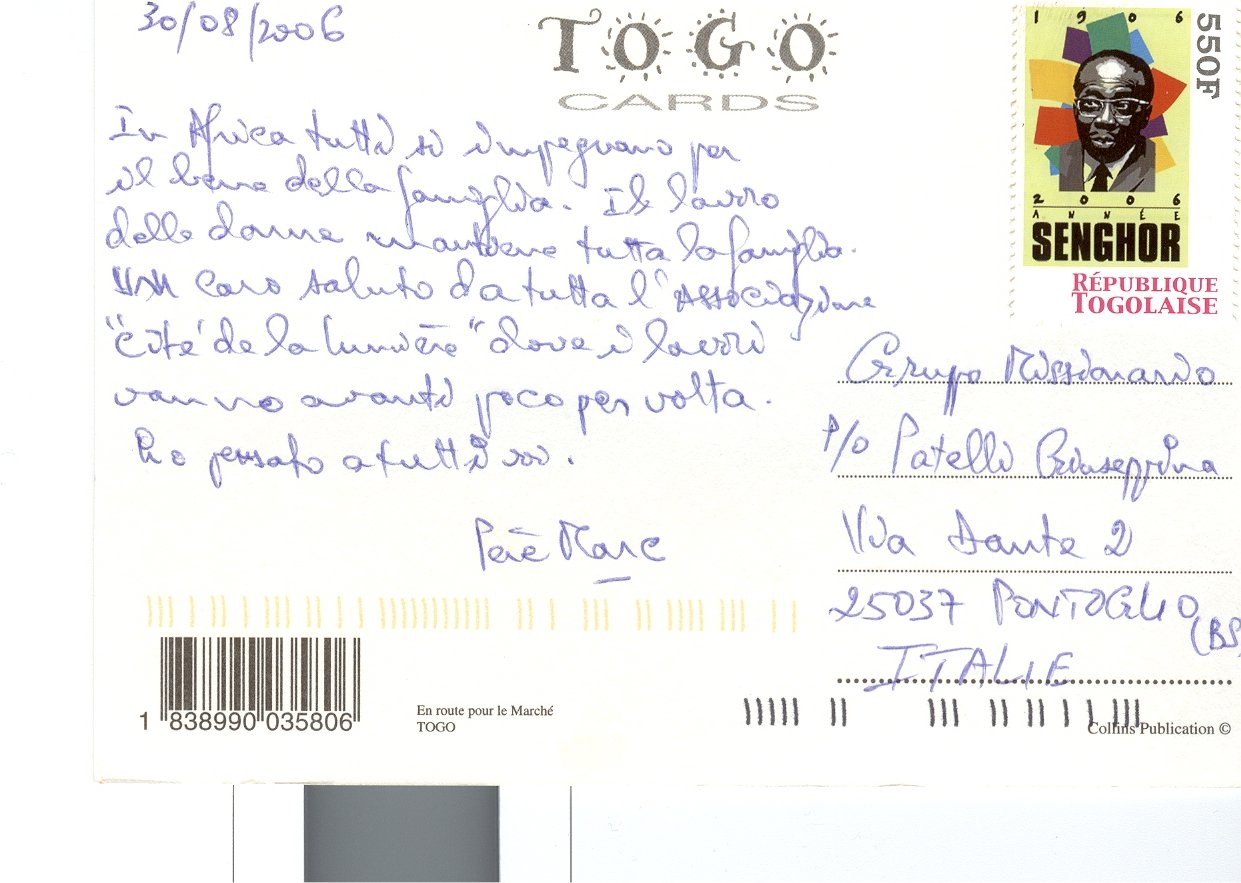 30/08/2006
TOGO
CARDS
In Africa tutti si impegnano per
il bene della famiglia. Il lavoro
delle donne mantiene tutta la famiglia.
Un caro saluto da tutta l'Associazione
"Cité de la lumière" dove i lavori
vanno avanti poco per volta.
Ho pensato a tutti voi.
Père Marc
1906
550F
2006
ANNÉE
SENGHOR
RÉPUBLIQUE
TOGOLAISE
Gruppo Missionario
P/O Patelli Giuseppina
Via Dante 2
25037 PONTOGLIO
(BS
ITALIE
1 838990 035806
En route pour le Marché
TOGO
Collins Publication ©